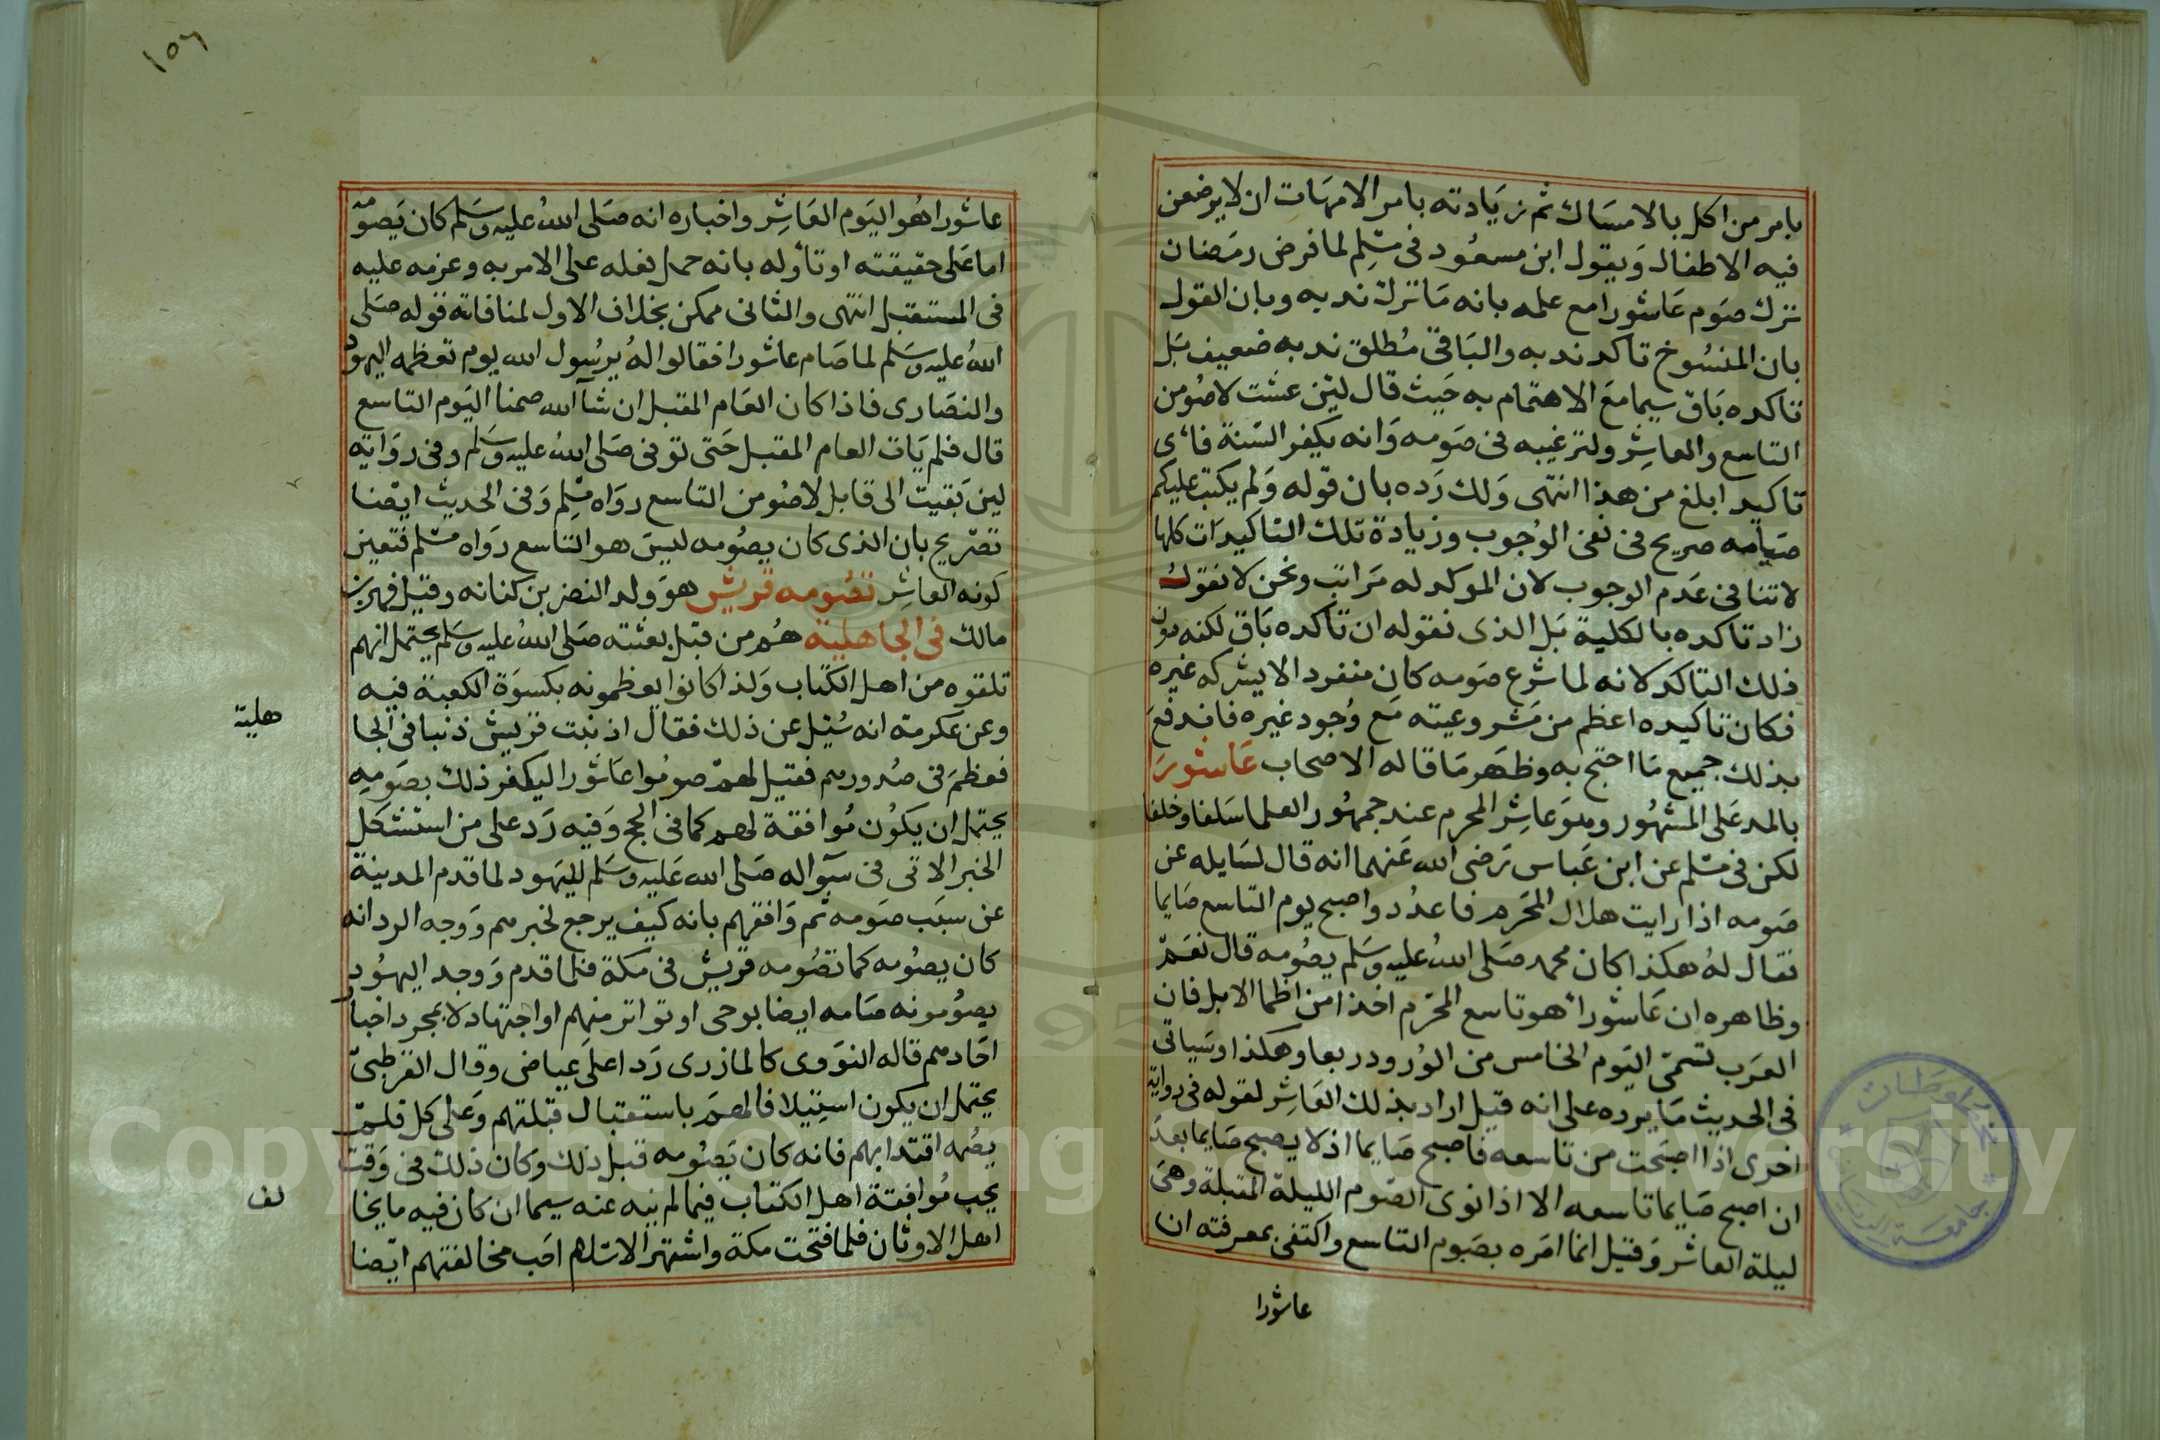 بامر من اكل بالامساك ثم زيادته بامر الامهات ان لا يرضعن
فيه الاطفال وبقول ابن مسعود فى مسلم لما فرض رمضان
ترك صوم عاشورا مع علمه بانه ما ترك ندبه وبان القول
بان المنسوخ تاكد ندبه والباقى مطلق ندبه ضعيف بل
تاكده باق سيما مع الاهتمام به حيث قال لين عشت لاصومن
التاسع والعاشر ولترغيبه فى صومه وانه يكفر السنة فاى
تاكيد ابلغ من هذا انتهى ولك رده بان قوله ولم يكتب عليكم
صيامه صريح فى نفى الوجوب وزيادة تلك التاكيدات كلها
لا تنافى عدم الوجوب لان الموكد له مراتب ونحن لا نقول
زاد تاكده بالكلية بل الذى نقوله ان تاكده باق لكنه دون
ذلك التاكد لانه لما شرع صومه كان منفردا لا يشركه غيره
فكان تاكيده اعظم من مشروعيته مع وجود غيره فاندفع
بذلك جميع ما احتج به وظهر ما قاله الاصحاب عاشورا
بالمد على المشهور وهو عاشر المحرم عند جمهور العلما سلفا وخلفا
لكن فى مسلم عن ابن عباس رضى الله عنهما انه قال لسايله عن
صومه اذا رايت هلال المحرم فاعدد واصبح يوم التاسع صايما
فقال له هكذا كان محمد صلى الله عليه وسلم يصومه قال نعم
وظاهره ان عاشورا هو تاسع المحرم اخذا من اظما الابل فان
العرب تسمى اليوم الخامس من الورود ربعا وهكذا وسياتى
فى الحديث ما يرده على انه قيل اراد بذلك العاشر لقوله فى رواية
اخرى اذا اصبحت من تاسعه فاصبح صايما اذ لا يصبح صايما بعد
ان اصبح صايما تاسعه الا اذا نوى الصوم الليلة المقبلة وهى
ليلة العاشر وقيل انما امره بصوم التاسع واكتفى بمعرفته ان
عاشورا
١٥٦
عاشورا هو اليوم العاشر واخباره انه صلى الله عليه وسلم كان يصومه
اما على حقيقته او تاوله بانه حمل فعله على الامر به وعزمه عليه
فى المستقبل انتهى والثانى ممكن بخلاف الاول لمنافاته قوله صلى
الله عليه وسلم لما صام عاشورا فقالوا له يرسول الله يوم تعظمه اليهود
والنصارى فاذا كان العام المقبل ان شآ الله صمنا اليوم التاسع
قال فلم يات العام المقبل حتى توفى صلى الله عليه وسلم وفى رواية
لين بقيت الى قابل لاصومن التاسع رواه مسلم وفى الحديث ايضا
تصريح بان الذى كان يصومه ليس هو التاسع رواه مسلم فتعين
كونه العاشر تصومه قريش هو ولد النضر بن كنانه وقيل فهر بن
مالك فى الجاهلية هم من قبل بعثته صلى الله عليه وسلم يحتمل انهم
تلقوه من اهل الكتاب ولذا كانوا يعظمونه بكسوة الكعبة فيه
وعن عكرمة انه سيل عن ذلك فقال اذنبت قريش ذنبا فى الجا
هلية
فعظم فى صدورهم فقيل لهم صوموا عاشورا ليكفر ذلك بصومه
يحتمل ان يكون موافقة لهم كما فى الحج وفيه رد على من استشكل
الخبر الاتى فى سؤاله صلى الله عليه وسلم لليهود لما قدم المدينة
عن سبب صومه ثم وافقهم بانه كيف يرجع لخبرهم ووجه الرد انه
كان يصومه كما تصومه قريش فى مكة فلما قدم ووجد اليهود
يصومونه صامه ايضا بوحى او تواتر منهم او اجتهاد لا بمجرد اخبار
احادهم قاله النووى كالمازرى ردا على عياض وقال القرطبى
يحتمل ان يكون استيلافا لهم باستقبال قبلتهم وعلى كل فلم
يصمه اقتدا بهم فانه كان يصومه قبل ذلك وكان ذلك فى وقت
يحب موافقة اهل الكتاب فيما لم ينه عنه سيما ان كان فيه ما يخا
لف
اهل الاوثان فلما فتحت مكة واشتهر الاسلام احب مخالفتهم ايضا